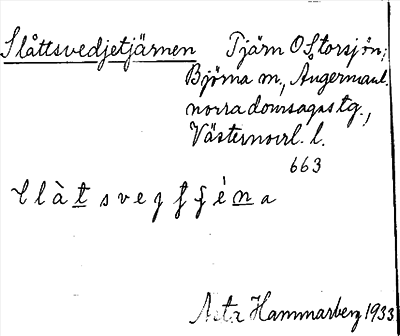 Slåttsvedjetjärnen Tjärn O Storsjön;
Björna sn, Ångermanl.
norra domsagas tg.,
Västernorrl. l.
663
Asta Hammarberg 1933